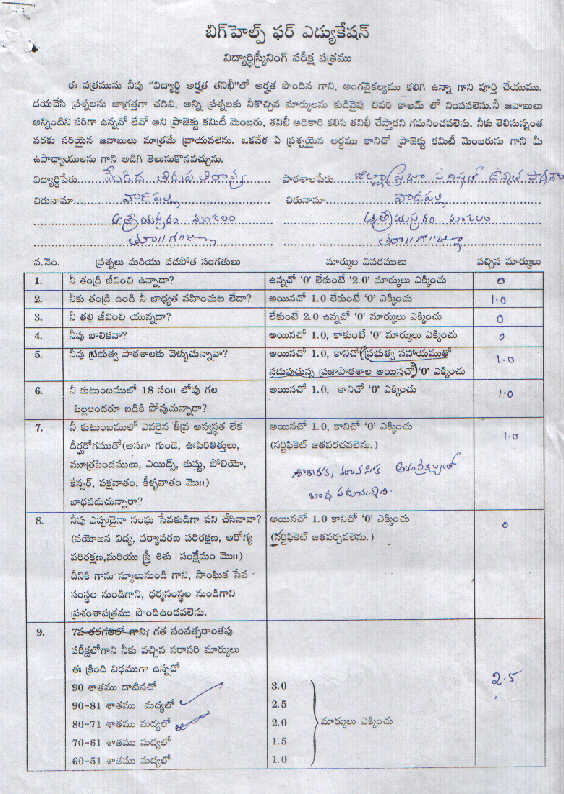 బిగ్‌హెల్ప్ ఫర్ ఎడ్యుకేషన్
విద్యార్థిస్క్రీనింగ్ పరీక్ష పత్రము
ఈ పత్రమును నీవు "విద్యార్థి అర్హత తనిఖీ"లో అర్హత పొందిన గాని, అంగవైకల్యము కలిగి ఉన్నా గాని పూర్తి చేయుము.
దయచేసి ప్రశ్నలను జాగ్రత్తగా చదివి, అన్ని ప్రశ్నలకు నీకొచ్చిన మార్కులను కుడివైపు చివరి కాలమ్ లో నింపవలెను.నీ జవాబులు
అన్నియి సరిగా ఉన్నవో లేవో అని ప్రాజెక్టు కమిటీ మెంబరు, తనిఖీ అధికారి కలిసి తనిఖీ చేస్తారని గమనించవలెను. నీకు తెలిసినంత
వరకు సరియైన జవాబులు మాత్రమే వ్రాయవలెను. ఒకవేళ ఏ ప్రశ్నయైన అర్థము కానిచో ప్రాజెక్టు కమిటీ మెంబరును గాని మీ
ఉపాధ్యాయులను గాని అడిగి తెలుసుకొనవచ్చును.
విద్యార్థిపేరు పాఠశాలపేరు జిల్లా ప్రజా పరిషత్
చిరునామా వాడపల్లి చిరునామా వాడపల్లి
ఆత్రేయపురం మం॥ ఆత్రేయపురం మం॥
తూ॥గో॥జిల్లా తూ॥గో॥జిల్లా
వ.నెం. ప్రశ్నలు మరియు పరిచిత సంగతులు మార్కుల వివరములు వచ్చిన మార్కులు
1. నీ తండ్రి జీవించి ఉన్నాడా? ఉన్నచో '0' లేకుంటే '2.0' మార్కులు ఎక్కించు 0
2. నీకు తండ్రి ఉండి నీ బాధ్యత వహించుట లేదా? అయినచో 1.0 లేకుంటే '0' ఎక్కించు 1.0
3. నీ తల్లి జీవించి యున్నదా? లేకుంటే 2.0 ఉన్నచో '0' మార్కులు ఎక్కించు 0
4. నీవు బాలికవా? అయినచో 1.0, కాకుంటే '0' మార్కులు ఎక్కించు
5. నీవు ప్రభుత్వ పాఠశాలకు వెళ్ళుచున్నావా? అయినచో 1.0, కానిచో (ప్రభుత్వ సహాయముతో 1.0
నడుపుచున్న ప్రజాపాఠశాల అయినచో) '0' ఎక్కించు
6. నీ కుటుంబములో 18 సం॥ లోపు గల అయినచో 1.0, కానిచో '0' ఎక్కించు 1.0
పిల్లలందరూ బడికి పోవుచున్నారా?
7. నీ కుటుంబములో ఎవరైన తీవ్ర అస్వస్థత లేక అయినచో 1.0, కానిచో '0' ఎక్కించు 1.0
దీర్ఘరోగముతో(అనగా గుండె, ఊపిరితిత్తులు, (సర్టిఫికెట్ జతపరచవలెను.)
మూత్రపిండములు, ఎయిడ్స్, కుష్టు, పోలియో,
కేన్సర్, పక్షవాతం, కీళ్ళవాతం మొ॥)
బాధపడుచున్నారా?
8. నీవు ఎప్పుడైనా సంఘ సేవకుడిగా పని చేసినావా? అయినచో 1.0 కానిచో '0' ఎక్కించు 0
(వయోజన విద్య, పర్యావరణ పరిరక్షణ, ఆరోగ్య (సర్టిఫికెట్ జతపర్చవలెను.)
పరిరక్షణ,మరియు స్త్రీ శిశు సంక్షేమం మొ॥)
దీనికి గాను స్కూలునుండి గాని, సాంఘిక సేవ
సంస్థల నుండిగాని, ధర్మసంస్థల నుండిగాని
ప్రశంసాపత్రము పొందిఉండవలెను.
9. 7వ తరగతిలో గాని/ గత సంవత్సరాంతపు
పరీక్షలోగాని నీకు వచ్చిన సరాసరి మార్కులు
ఈ క్రింది విధముగా ఉన్నచో 2.5
90 శాతము దాటినచో 3.0
90-81 శాతము మధ్యలో 2.5
80-71 శాతము మధ్యలో 2.0 మార్కులు ఎక్కించు
70-61 శాతము మధ్యలో 1.5
60-51 శాతము మధ్యలో 1.0